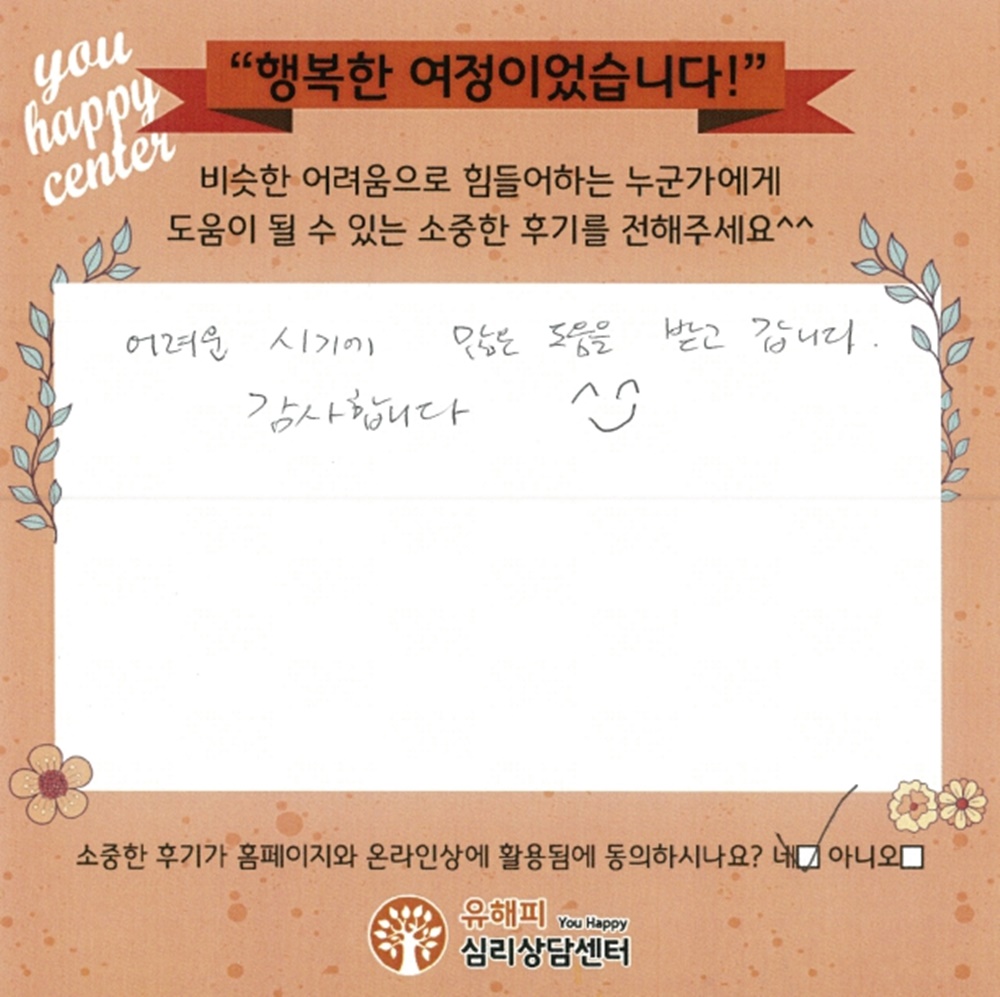 you
happy
center
“행복한 여정이었습니다!”
비슷한 어려움으로 힘들어하는 누군가에게
도움이 될 수 있는 소중한 후기를 전해주세요^^
어려운 시기에 많은 도움을 받고 갑니다.
감사합니다 ^^
소중한 후기가 홈페이지와 온라인상에 활용됨에 동의하시나요? 네☑ 아니오☐
유해피 You Happy
심리상담센터